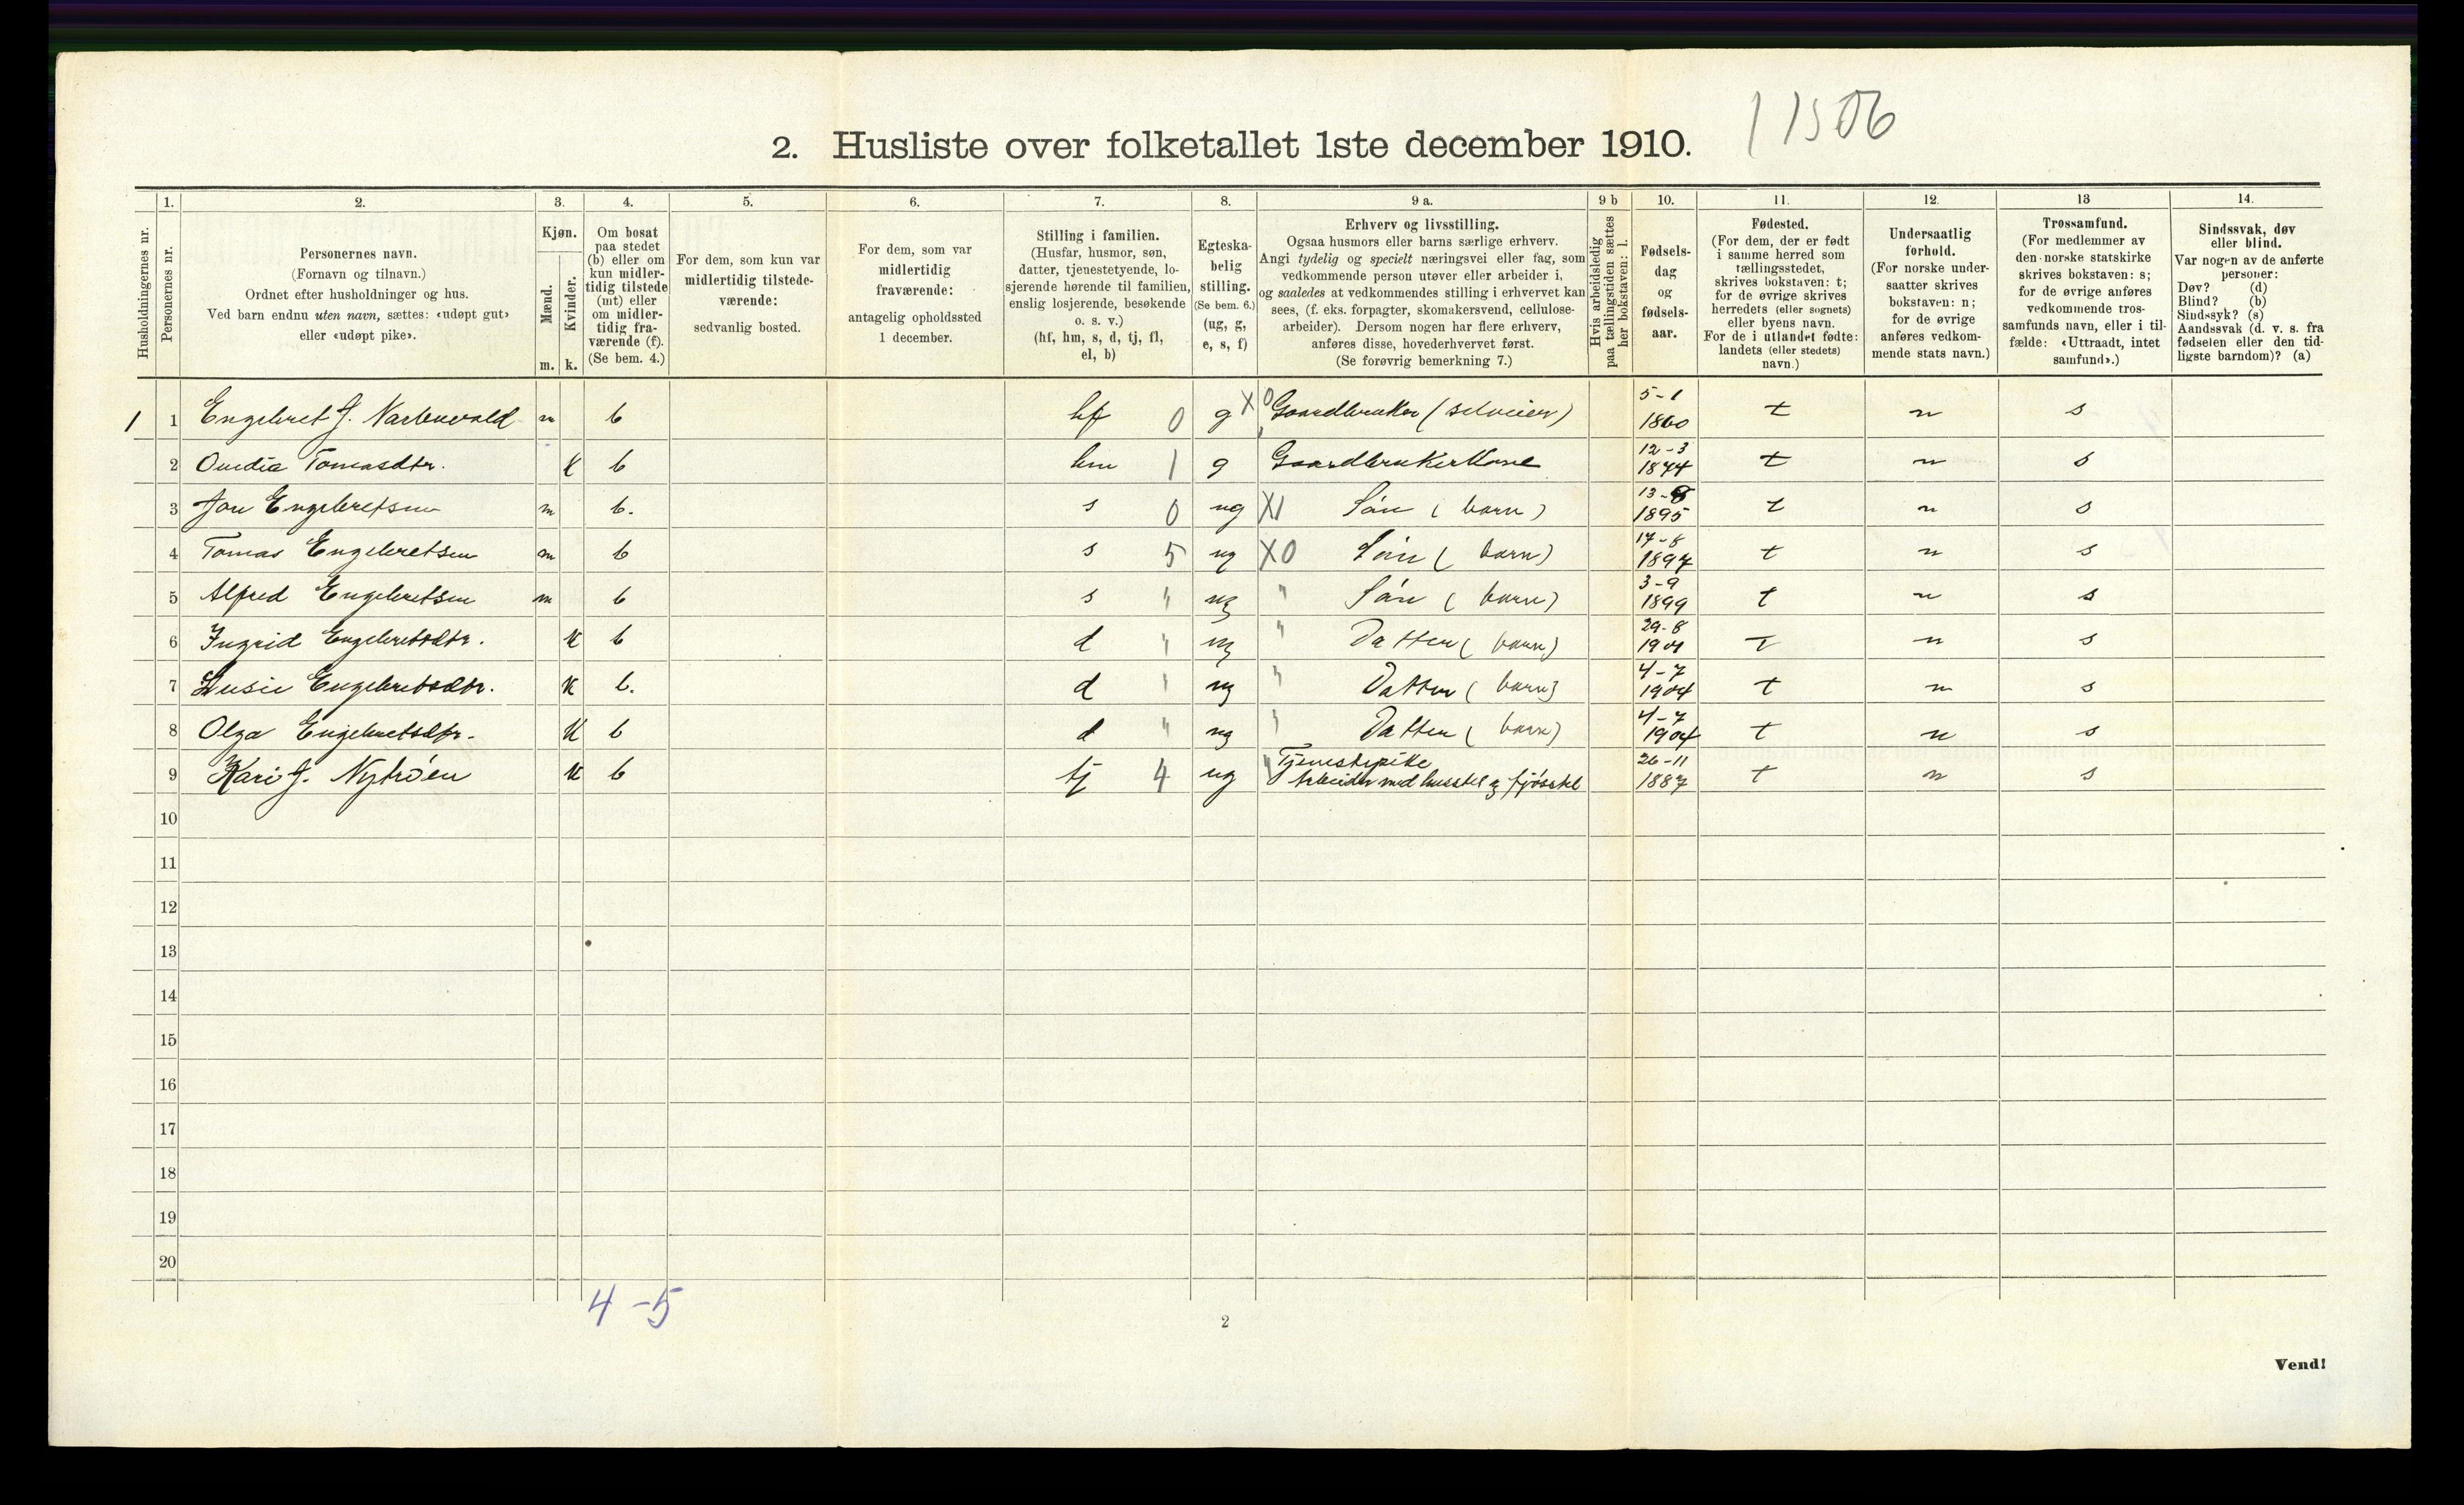 11506
2. Husliste over folketallet 1ste december 1910.
Husholdningernes nr.
1.
Personernes nr.
2.
Personernes navn.
(Fornavn og tilnavn.)
Ordnet efter husholdninger og hus.
Ved barn endnu uten navn, sættes: «udøpt gut»
eller «udøpt pike».
3.
Kjøn.
Mænd.
Kvinder.
m. k.
4.
Om bosat
paa stedet
(b) eller om
kun midler-
tidig tilstede
(mt) eller
om midler-
tidig fra-
værende (f).
(Se bem. 4.)
5.
For dem, som kun var
midlertidig tilstede-
værende:
sedvanlig bosted.
6.
For dem, som var
midlertidig
fraværende:
antagelig opholdssted
1 december.
7.
Stilling i familien.
(Husfar, husmor, søn,
datter, tjenestetyende, lo-
sjerende hørende til familien,
enslig losjerende, besøkende
o. s. v.)
(hf, hm, s, d, tj, fl,
el, b)
8.
Egteska-
belig
stilling.
(Se bem. 6.)
(ug, g,
e, s, f)
9 a.
Erhverv og livsstilling.
Ogsaa husmors eller barns særlige erhverv.
Angi tydelig og specielt næringsvei eller fag, som
vedkommende person utøver eller arbeider i,
og saaledes at vedkommendes stilling i erhvervet kan
sees, (f. eks. forpagter, skomakersvend, cellulose-
arbeider). Dersom nogen har flere erhverv,
anføres disse, hovederhvervet først.
(Se forøvrig bemerkning 7.)
9 b
Hvis arbeidsledig
paa tællingstiden sættes
her bokstaven: l.
10.
Fødsels-
dag
og
fødsels-
aar.
11.
Fødested.
(For dem, der er født
i samme herred som
tællingsstedet,
skrives bokstaven: t;
for de øvrige skrives
herredets (eller sognets)
eller byens navn.
For de i utlandet fødte:
landets (eller stedets)
navn.)
12.
Undersaatlig
forhold.
(For norske under-
saatter skrives
bokstaven: n;
for de øvrige
anføres vedkom-
mende stats navn.)
13
Trossamfund.
(For medlemmer av
den norske statskirke
skrives bokstaven: s;
for de øvrige anføres
vedkommende tros-
samfunds navn, eller i til-
fælde: «Uttraadt, intet
samfund».)
14.
Sindssvak, døv
eller blind.
Var nogen av de anførte
personer:
Døv? (d)
Blind? (b)
Sindssyk? (s)
Aandssvak (d. v. s. fra
fødselen eller den tid-
ligste barndom)? (a)
1 1 Engebret J. m b hf 0 g X 0 Gaardbruker (selveier) 5-1 1860 t n s
2 Tomasdtr. k b hm 1 g Gaardbrukerkone 12-3 t n s
3 Jon Engebretsen m b. s 0 ug X1 Sön (barn) 13-8 1895 t n s
4 Tomas Engebretsen m b s 5 ug X0 Sön (barn) 17-8 1897 t n s
5 Alfred Engebretsen m b s " ug " Sön (barn) 3-9 1899 t n s
6 Ingrid Engebretsdtr. k b d " ug " Datter (barn) 29-8 1901 t n s
7 Engebretsdtr. k b. d " ug " Datter (barn) 4-7 1904 t n s
8 Olga Engebretsdtr. k b d " ug " Datter (barn) 4-7 1904 t n s
9 Kari J. Nytrøen k b tj 4 ug " Tjenestepike Arbeider med husstel og fjösstel 26-11 1887 t n s
10
11
12
13
14
15
16
17
18
19
20
4-5
2
Vend!